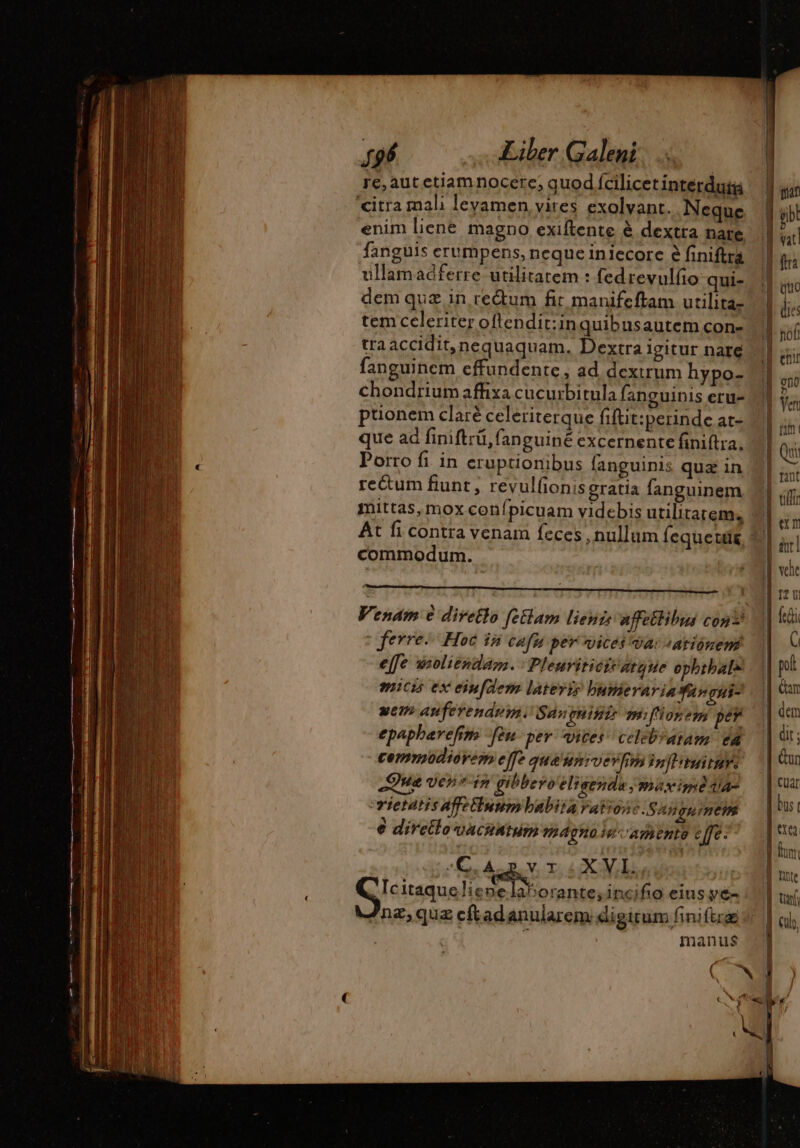 596 Liber Galeni
re, aut etiam nocere, quod ſcilicet interdum
citra mali levamen vires exolvant. Neque
enim liene magno exiſtente è dextra nare
ſanguis erumpens, neque in iecore è ſiniſtra
ullam adferre utilitatem : ſed revulſio qui-
dem quæ in rectum fit manifeſtam utilita-
tem celeriter oſtendit: in quibus autem con-
tra accidit, nequaquam. Dextra igitur nare
ſanguinem effundente, ad dextrum hypo-
chondrium affixa cucurbitula ſanguinis eru-
ptionem clarè celeriterque ſiſtit: perinde at-
que ad ſiniſtrū, ſanguinē excernente ſiniſtra.
Porro ſi in eruptionibus ſanguinis quæ in
rectum fiunt, revulſionis gratia ſanguinem
mittas, mox conſpicuam videbis utilitatem.
At ſi contra venam ſeces, nullum ſequetur
commodum.
Venam è directo ſectam lienis affectibus con-
ferre. Hoc in caſu per vices evacuationem
eſſe moliendam. Pleuriticis atque ophthal-
micis ex eiuſdem lateris humeraria ſangui-
nem auferendum. Sanguinis miſſionem per
epaphæreſim ſeu per vices celebratam eâ
commodiorem eſſe quæ univerſim inſtituitur.
Quæ vena in gibbero eligenda, maximè va-
rietatis affectuum habita ratione. Sanguinem
è directo vacuatum magno iuvamento eſſe.
CAPVT XVI.
SIcitaque liene laborante, inciſio eius ve-
næ, quæ eſt ad anularem digitum ſiniſtræ
manus